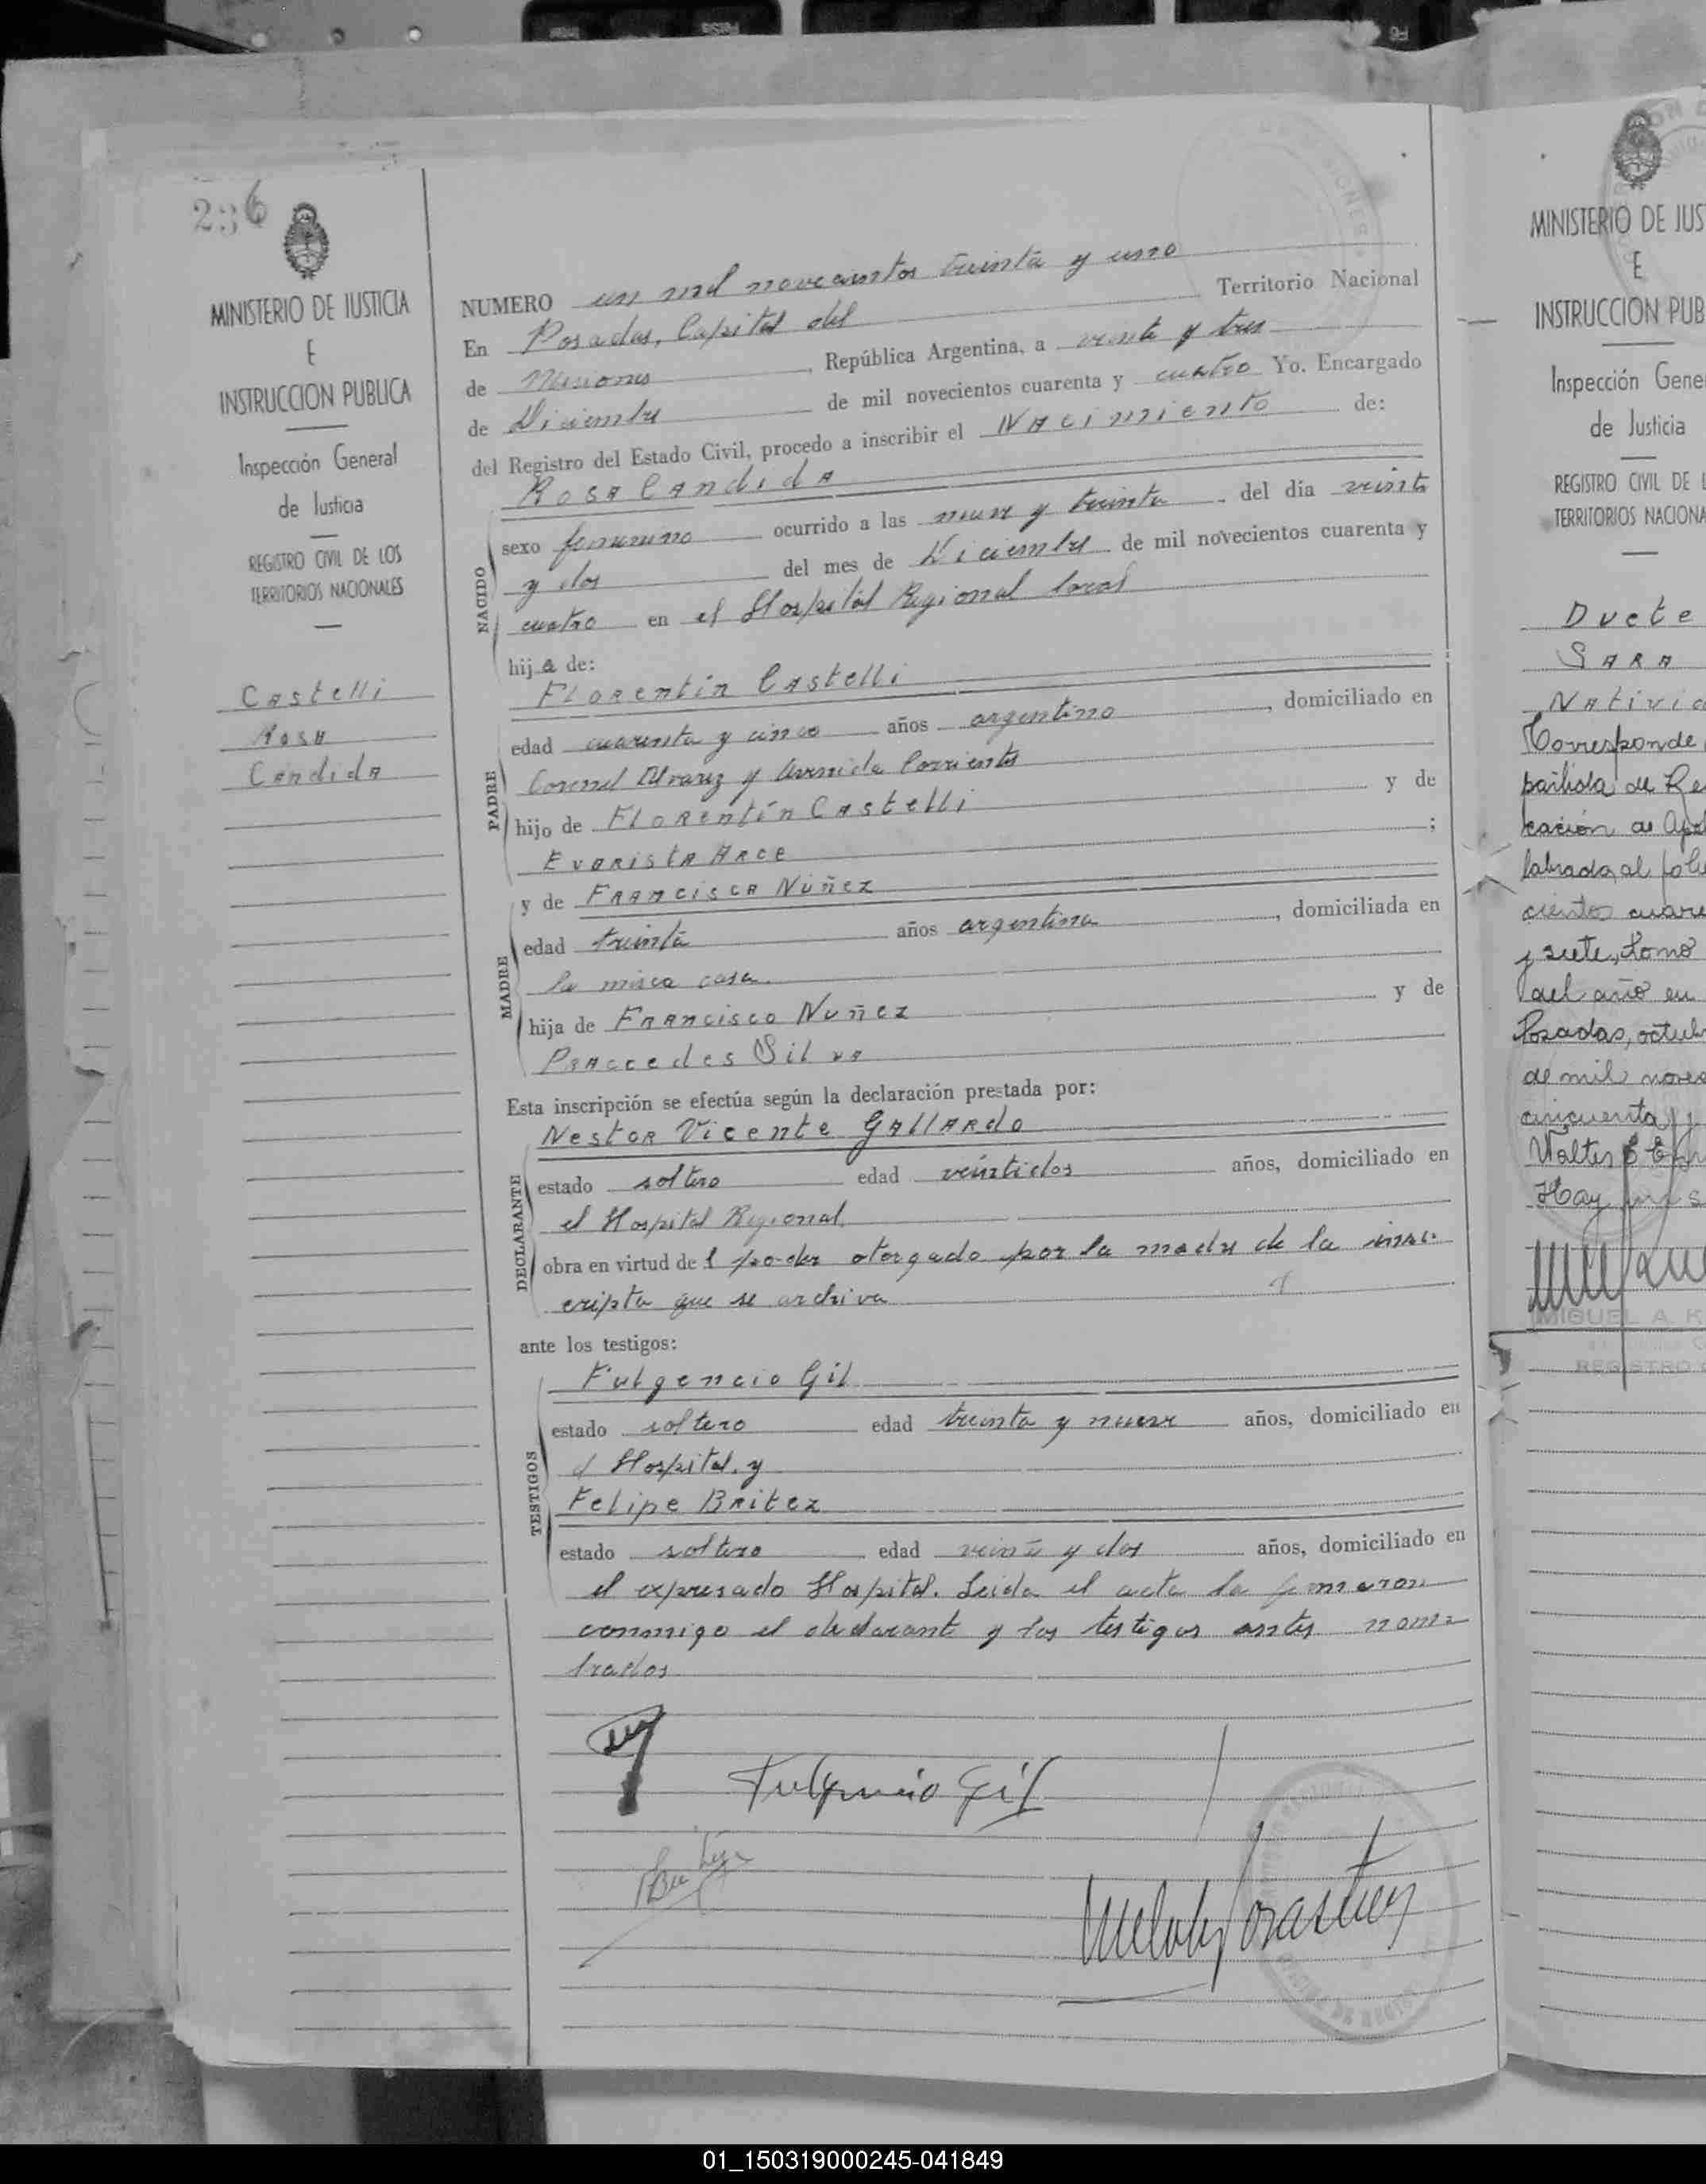 236
MINISTERIO DE JUSTICIA
E
INSTRUCCION PUBLICA
Inspección General
de Justicia
REGISTRO CIVIL DE LOS
TERRITORIOS NACIONALES
Castelli
Rosa
Candida
NUMERO un mil novecientos treinta y uno
En Posadas, Capital del Territorio Nacional
de Misiones, República Argentina, a veinte y tres
de Diciembre de mil novecientos cuarenta y cuatro Yo. Encargado
del Registro del Estado Civil, procedo a inscribir el Nacimiento de:
NACIDO
Rosa Candida
sexo femenino ocurrido a las nueve y treinta del día veinte
y dos del mes de Diciembre de mil novecientos cuarenta y
cuatro en el Hospital Regional local
hija de:
PADRE
Florentín Castelli
edad cuarenta y cinco años argentino, domiciliado en
Coronel Alvarez y Avenida Corrientes
hijo de Florentín Castelli y de
Evarista Arce;
MADRE
y de Francisca Núñez
edad treinta años argentina, domiciliada en
la misma casa
hija de Francisco Nuñez y de
Praccedes Silva
Esta inscripción se efectúa según la declaración prestada por:
DECLARANTE
Nestor Vicente Gallardo
estado soltero edad veintidos años, domiciliado en
el Hospital Regional
obra en virtud del poder otorgado por la madre de la ins-
cripta que se archiva
ante los testigos:
TESTIGOS
Fulgencio Gil
estado soltero edad treinta y nueve años, domiciliado en
el Hospital. y
Felipe Britez
estado soltero edad veinte y dos años, domiciliado en
el expresado Hospital. Leida el acta la firmaron
conmigo el declarante y los testigos antes nom-
brados
Fulgencio Gil
MINISTERIO DE JUS
E
INSTRUCCION PUB
Inspección Gene
de Justicia
REGISTRO CIVIL DE L
TERRITORIOS NACIONA
Duete
Sara
Nativid
Corresponde
partida de Re
cación de
labrada al folio
ciento cuare
y siete, tomo
del año en
Posadas, octub
de mil nove
cincuenta y
Walter
Hay
MIGUEL A. K
REGISTRO
01_150319000245-041849